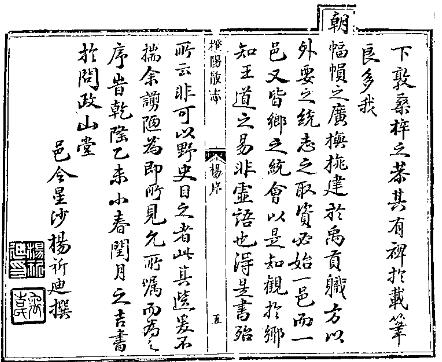 下敦桑梓之恭其有裨於載筆
良多我
朝幅幀之廣撫拢建於禹貢職方以
外要之統志之取資必始一邑而一
邑又皆鄉之統會以是知觀於鄉
知王道之易非虛語也得是書殆
樅陽散志
楊序
五
所云非可以野史目之者此其選爰不
揣余謭陋為即所見允所嘱而為之
序旹乾隆乙未小春閏月之吉書
於問政山堂
邑令星沙楊祈迪撰